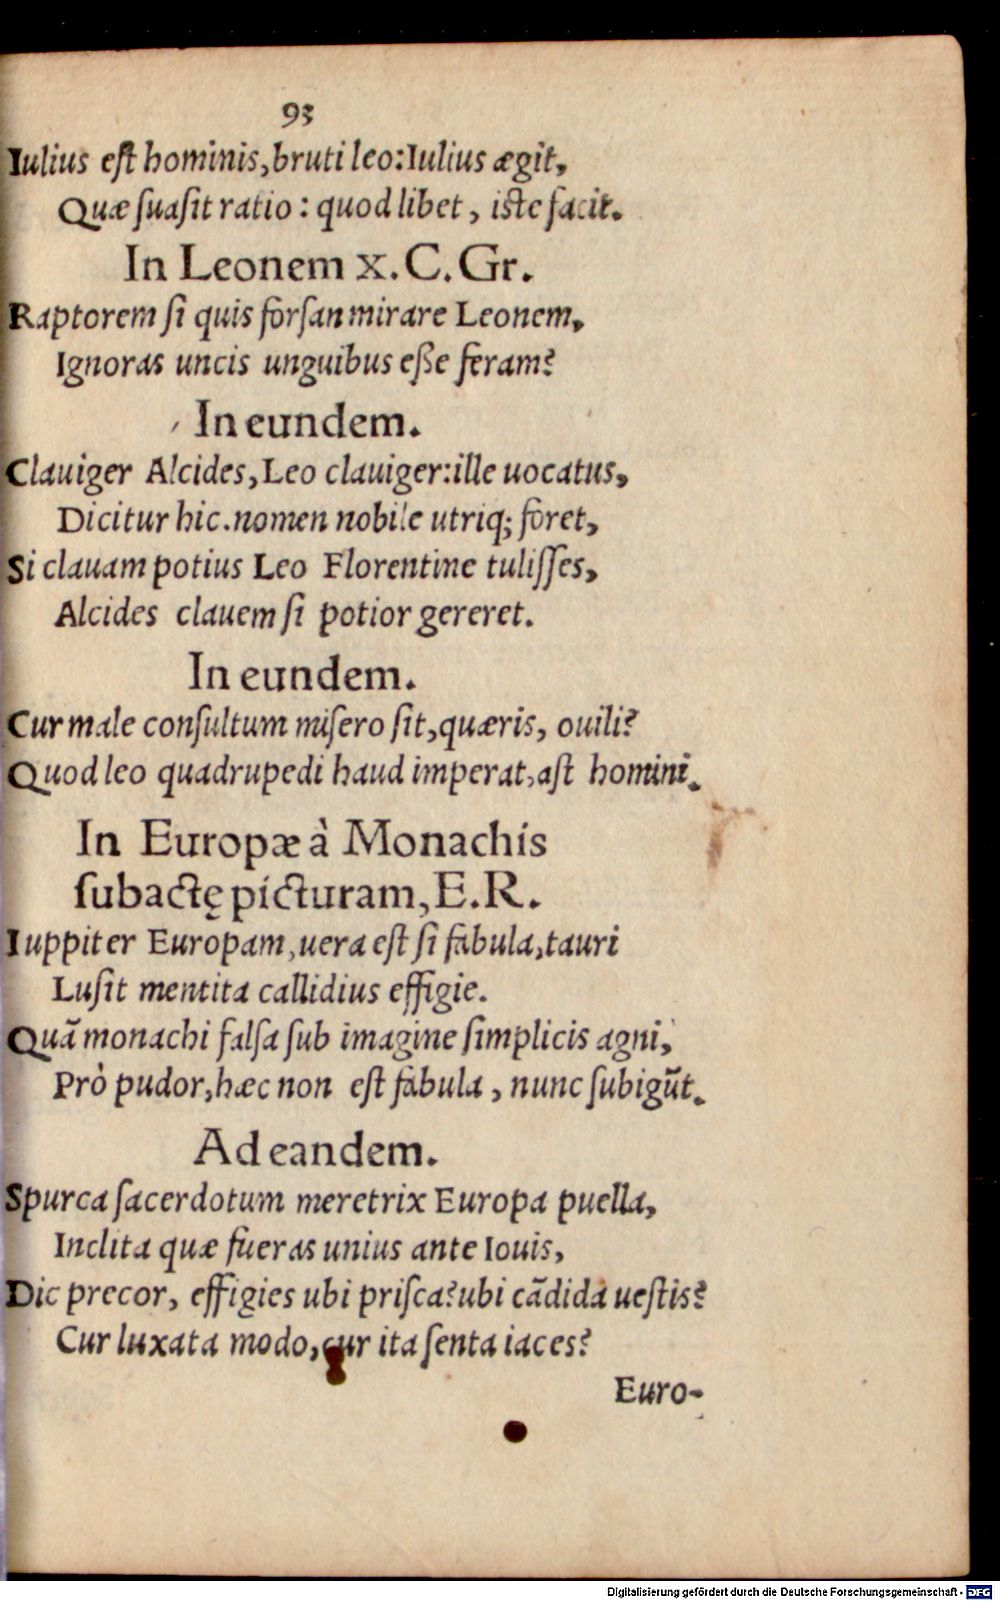 93
Iulius eſt hominis, bruti leo: Iulius ægit,
Quæ ſuaſit ratio: quod libet, iſte facit.
In Leonem x. C. Gr.
Raptorem ſi quis forſan mirare Leonem,
Ignoras uncis unguibus eſſe feram?
In eundem.
Clauiger Alcides, Leo clauiger: ille uocatus,
Dicitur hic. nomen nobile utriq; foret,
Si clauam potius Leo Florentine tuliſſes,
Alcides clauem ſi potior gereret.
In eundem.
Cur male conſultum miſero ſit, quæris, ouili?
Quod leo quadrupedi haud imperat, aſt homini.
In Europæ à Monachis
ſubactę picturam, E. R.
Iuppiter Europam, uera eſt ſi fabula, tauri
Luſit mentita callidius effigie.
Quã monachi falſa ſub imagine ſimplicis agni,
Prò pudor, hæc non eſt fabula, nunc ſubigũt.
Ad eandem.
Spurca ſacerdotum meretrix Europa puella,
Inclita quæ fueras unius ante Iouis,
Dic precor, effigies ubi priſca? ubi cãdida ueſtis?
Cur luxata modo, cur ita ſenta iaces?
Euro-
Digitalisierung gefördert durch die Deutsche Forschungsgemeinschaft - DFG